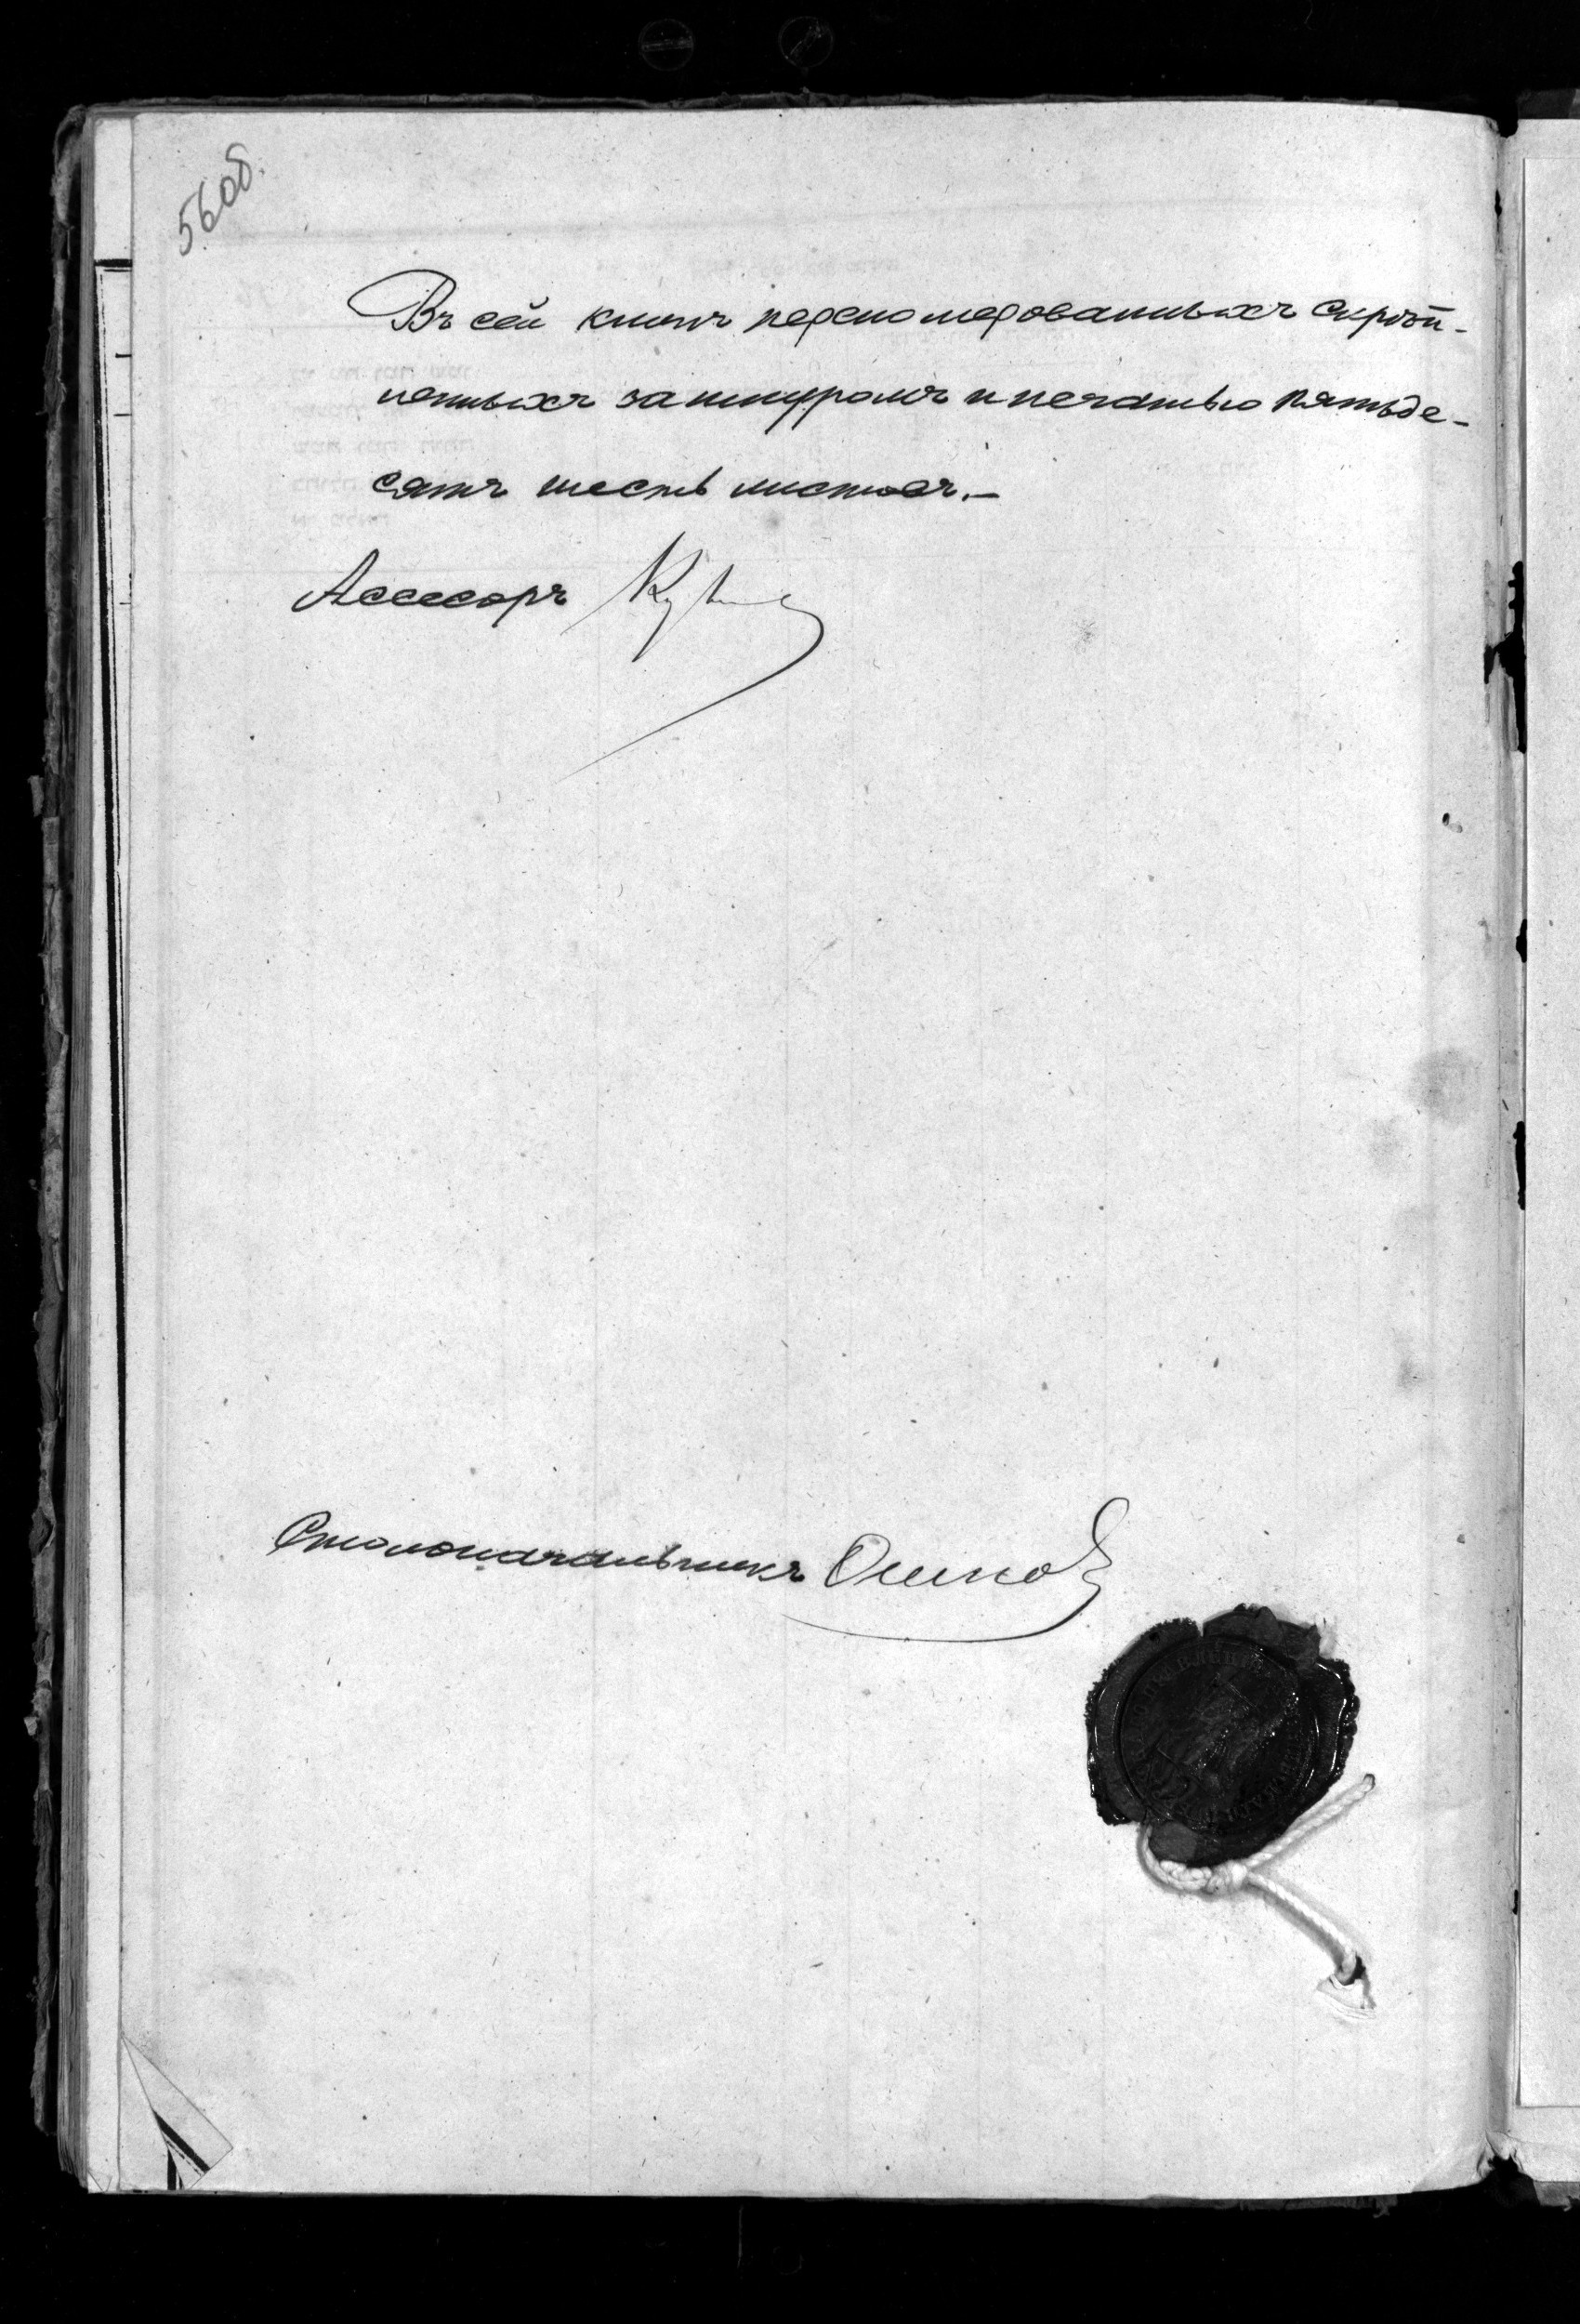 56об.
Въ сей книгѣ перенумерованныхъ скрѣп-
ленныхъ за шнуромъ и печатью пятьде-
сятъ шесть листовъ.—
Ассесоръ
Столоначальникъ